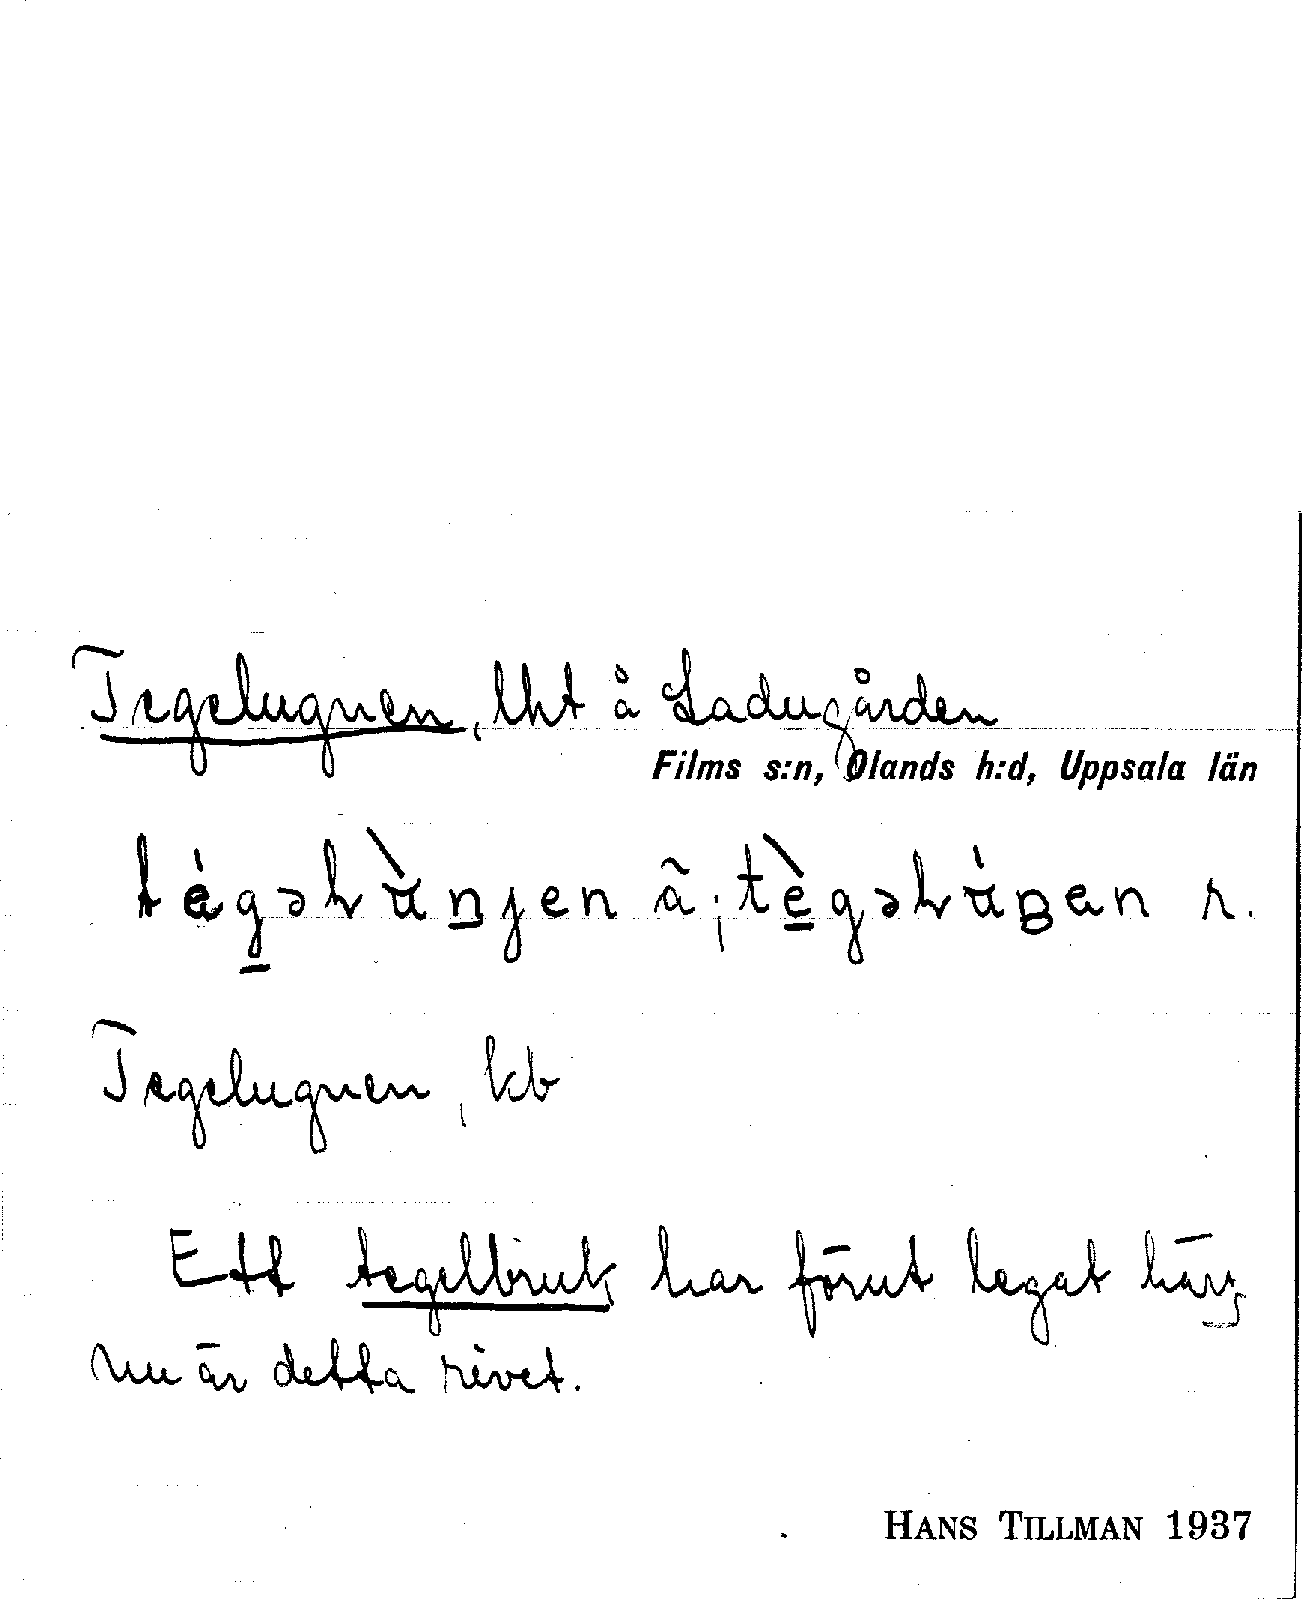 Tegelugnen, lht å Ladugården
Films s:n, Olands h:d, Uppsala län
r.
Tegelugnen, kb
Ett tegelbruk har förut legat här,
nu är detta rivet.
HANS TILLMAN 1937